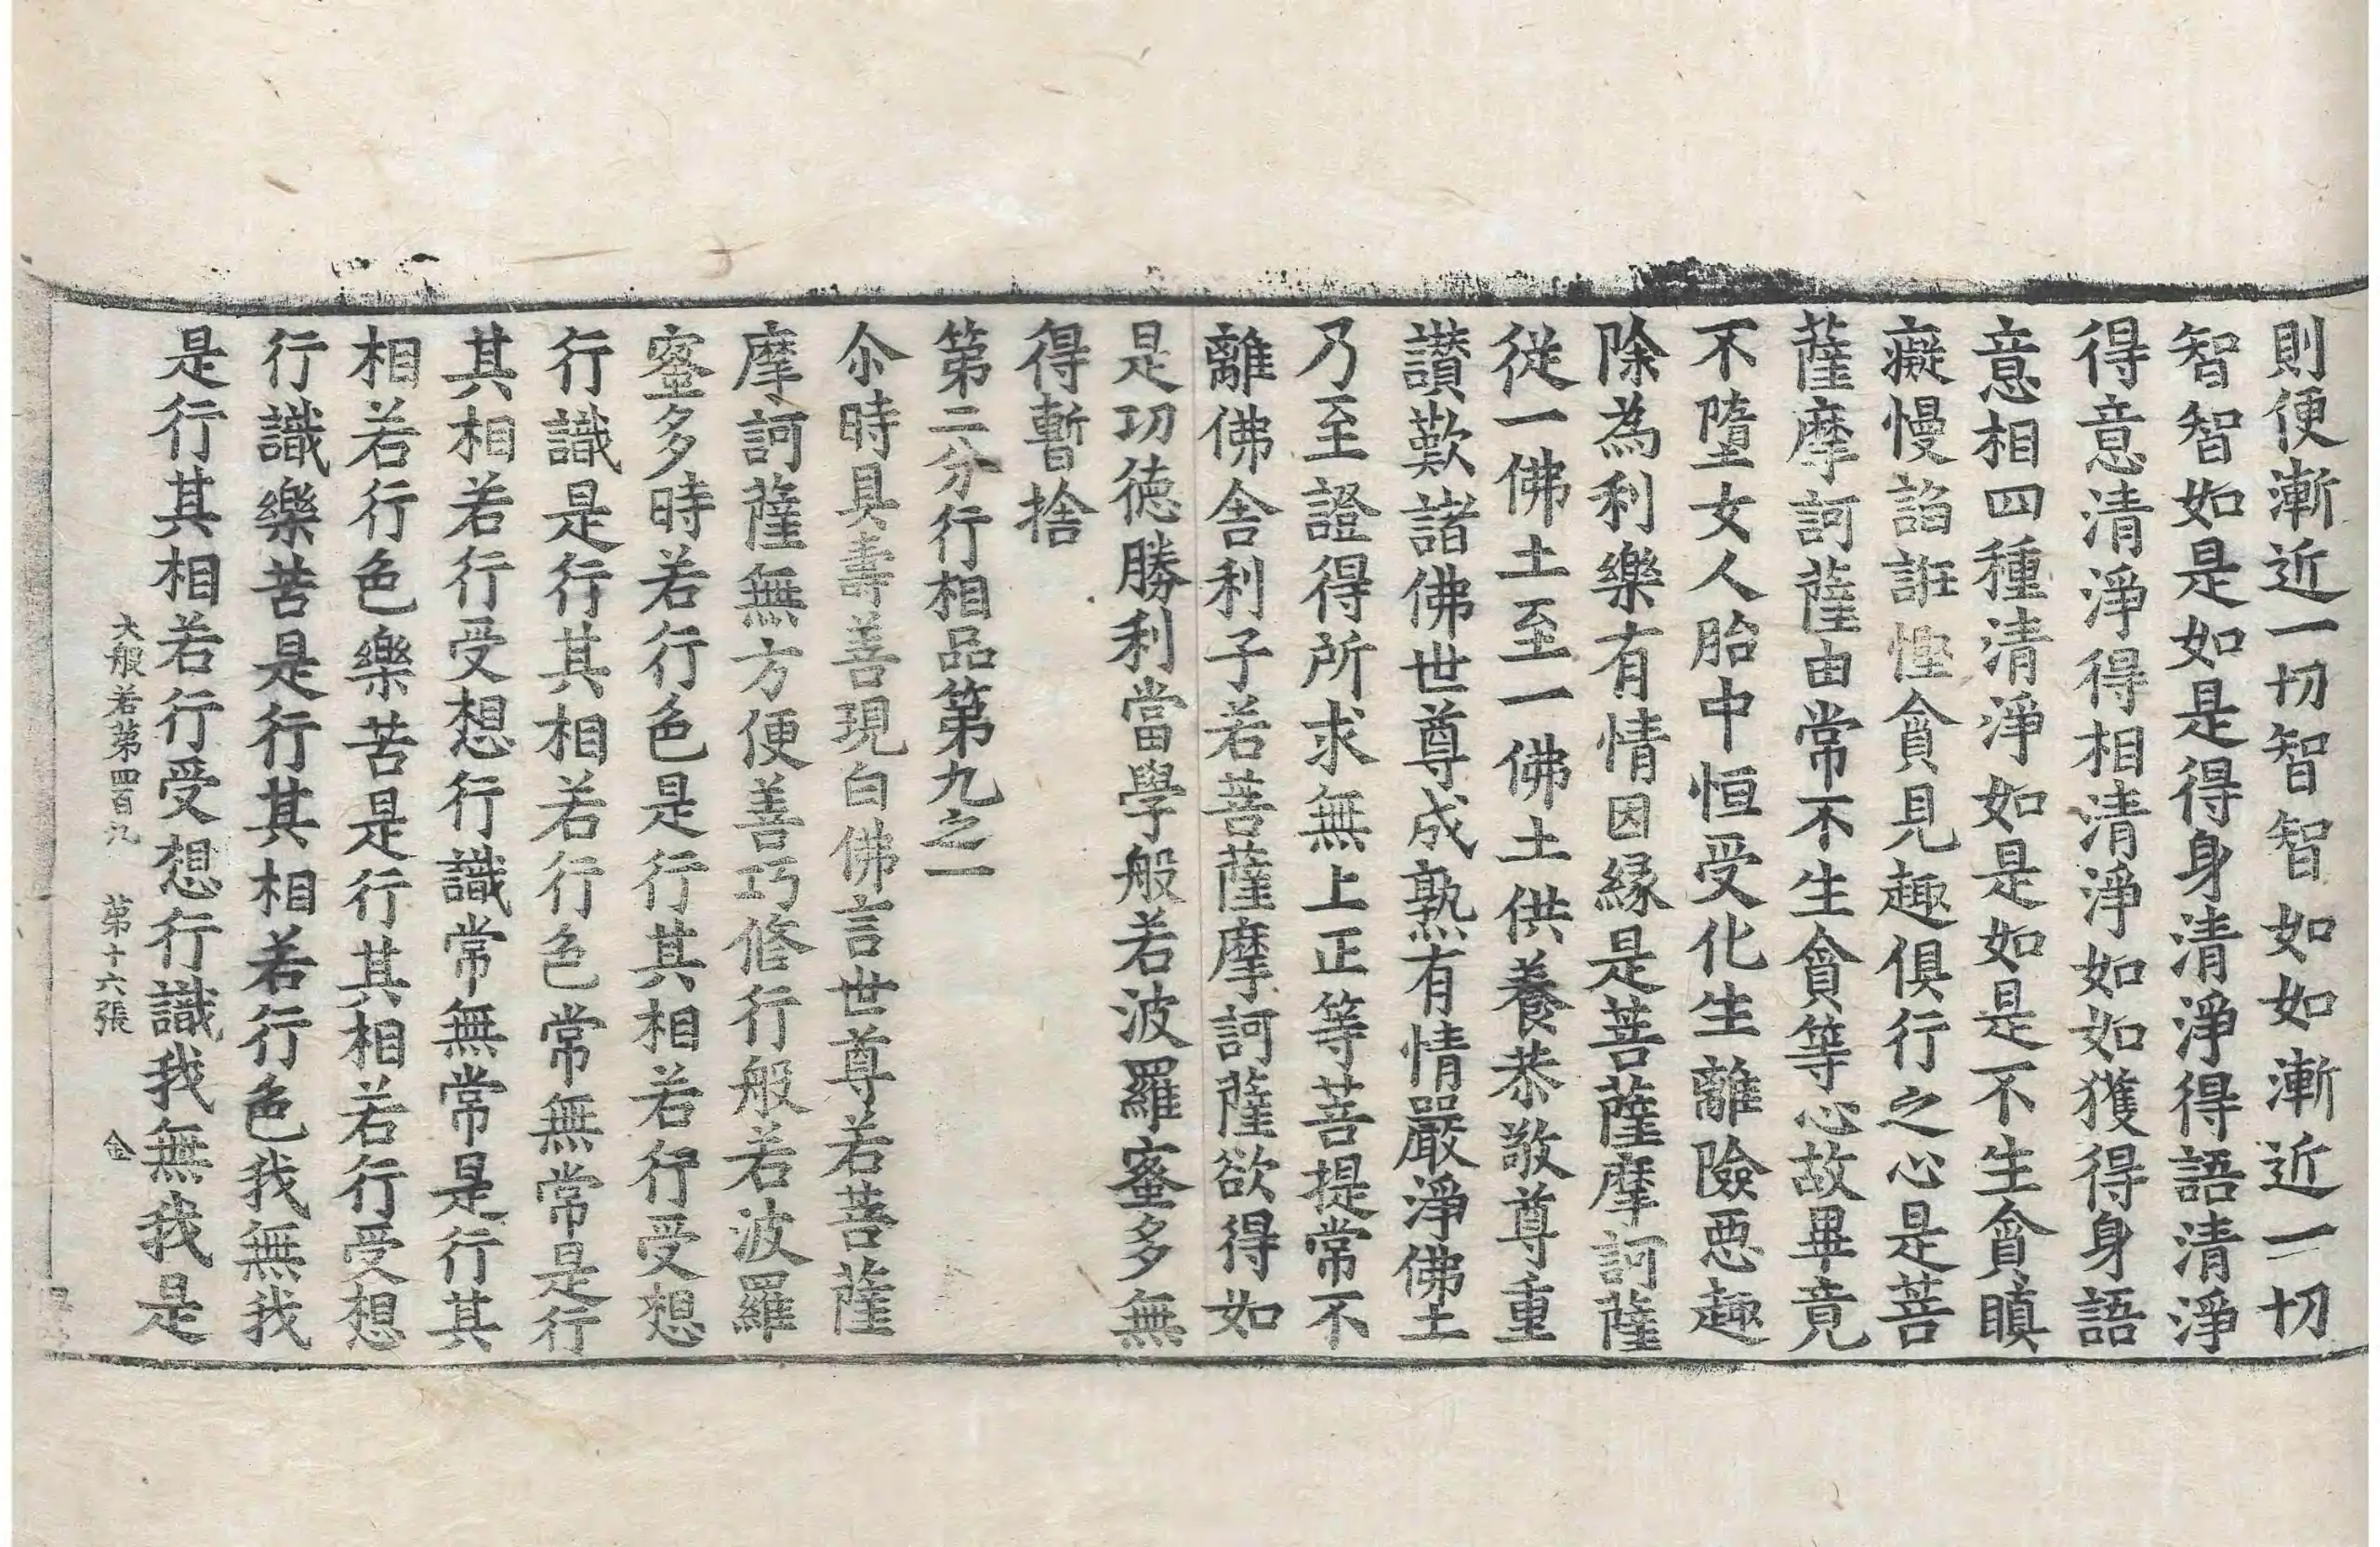 則便漸近一切智智如如漸近一切
智智如是如是得身清淨得語清淨
得意清淨得相清淨如如獲得身語
意相四種清淨如是如是不生貪瞋
癡慢諂誑慳貪見趣俱行之心是菩
薩摩訶薩由常不生貪等心故畢竟
不墮女人胎中恒受化生離險惡趣
除為利樂有情因緣是菩薩摩訶薩
從一佛土至一佛土供養恭敬尊重
讚歎諸佛世尊成熟有情嚴淨佛土
乃至證得所求無上正等菩提常不
離佛舍利子若菩薩摩訶薩欲得如
是功德勝利當學般若波羅蜜多無
得暫捨
第二分行相品第九之一
尒時具壽善現白佛言世尊若菩薩
摩訶薩無方便善巧修行般若波羅
蜜多時若行色是行其相若行受想
行識是行其相若行色常無常是行
其相若行受想行識常無常是行其
相若行色樂苦是行其相若行受想
行識樂苦是行其相若行色我無我
是行其相若行受想行識我無我是
大般若第四百九 第十六張 金